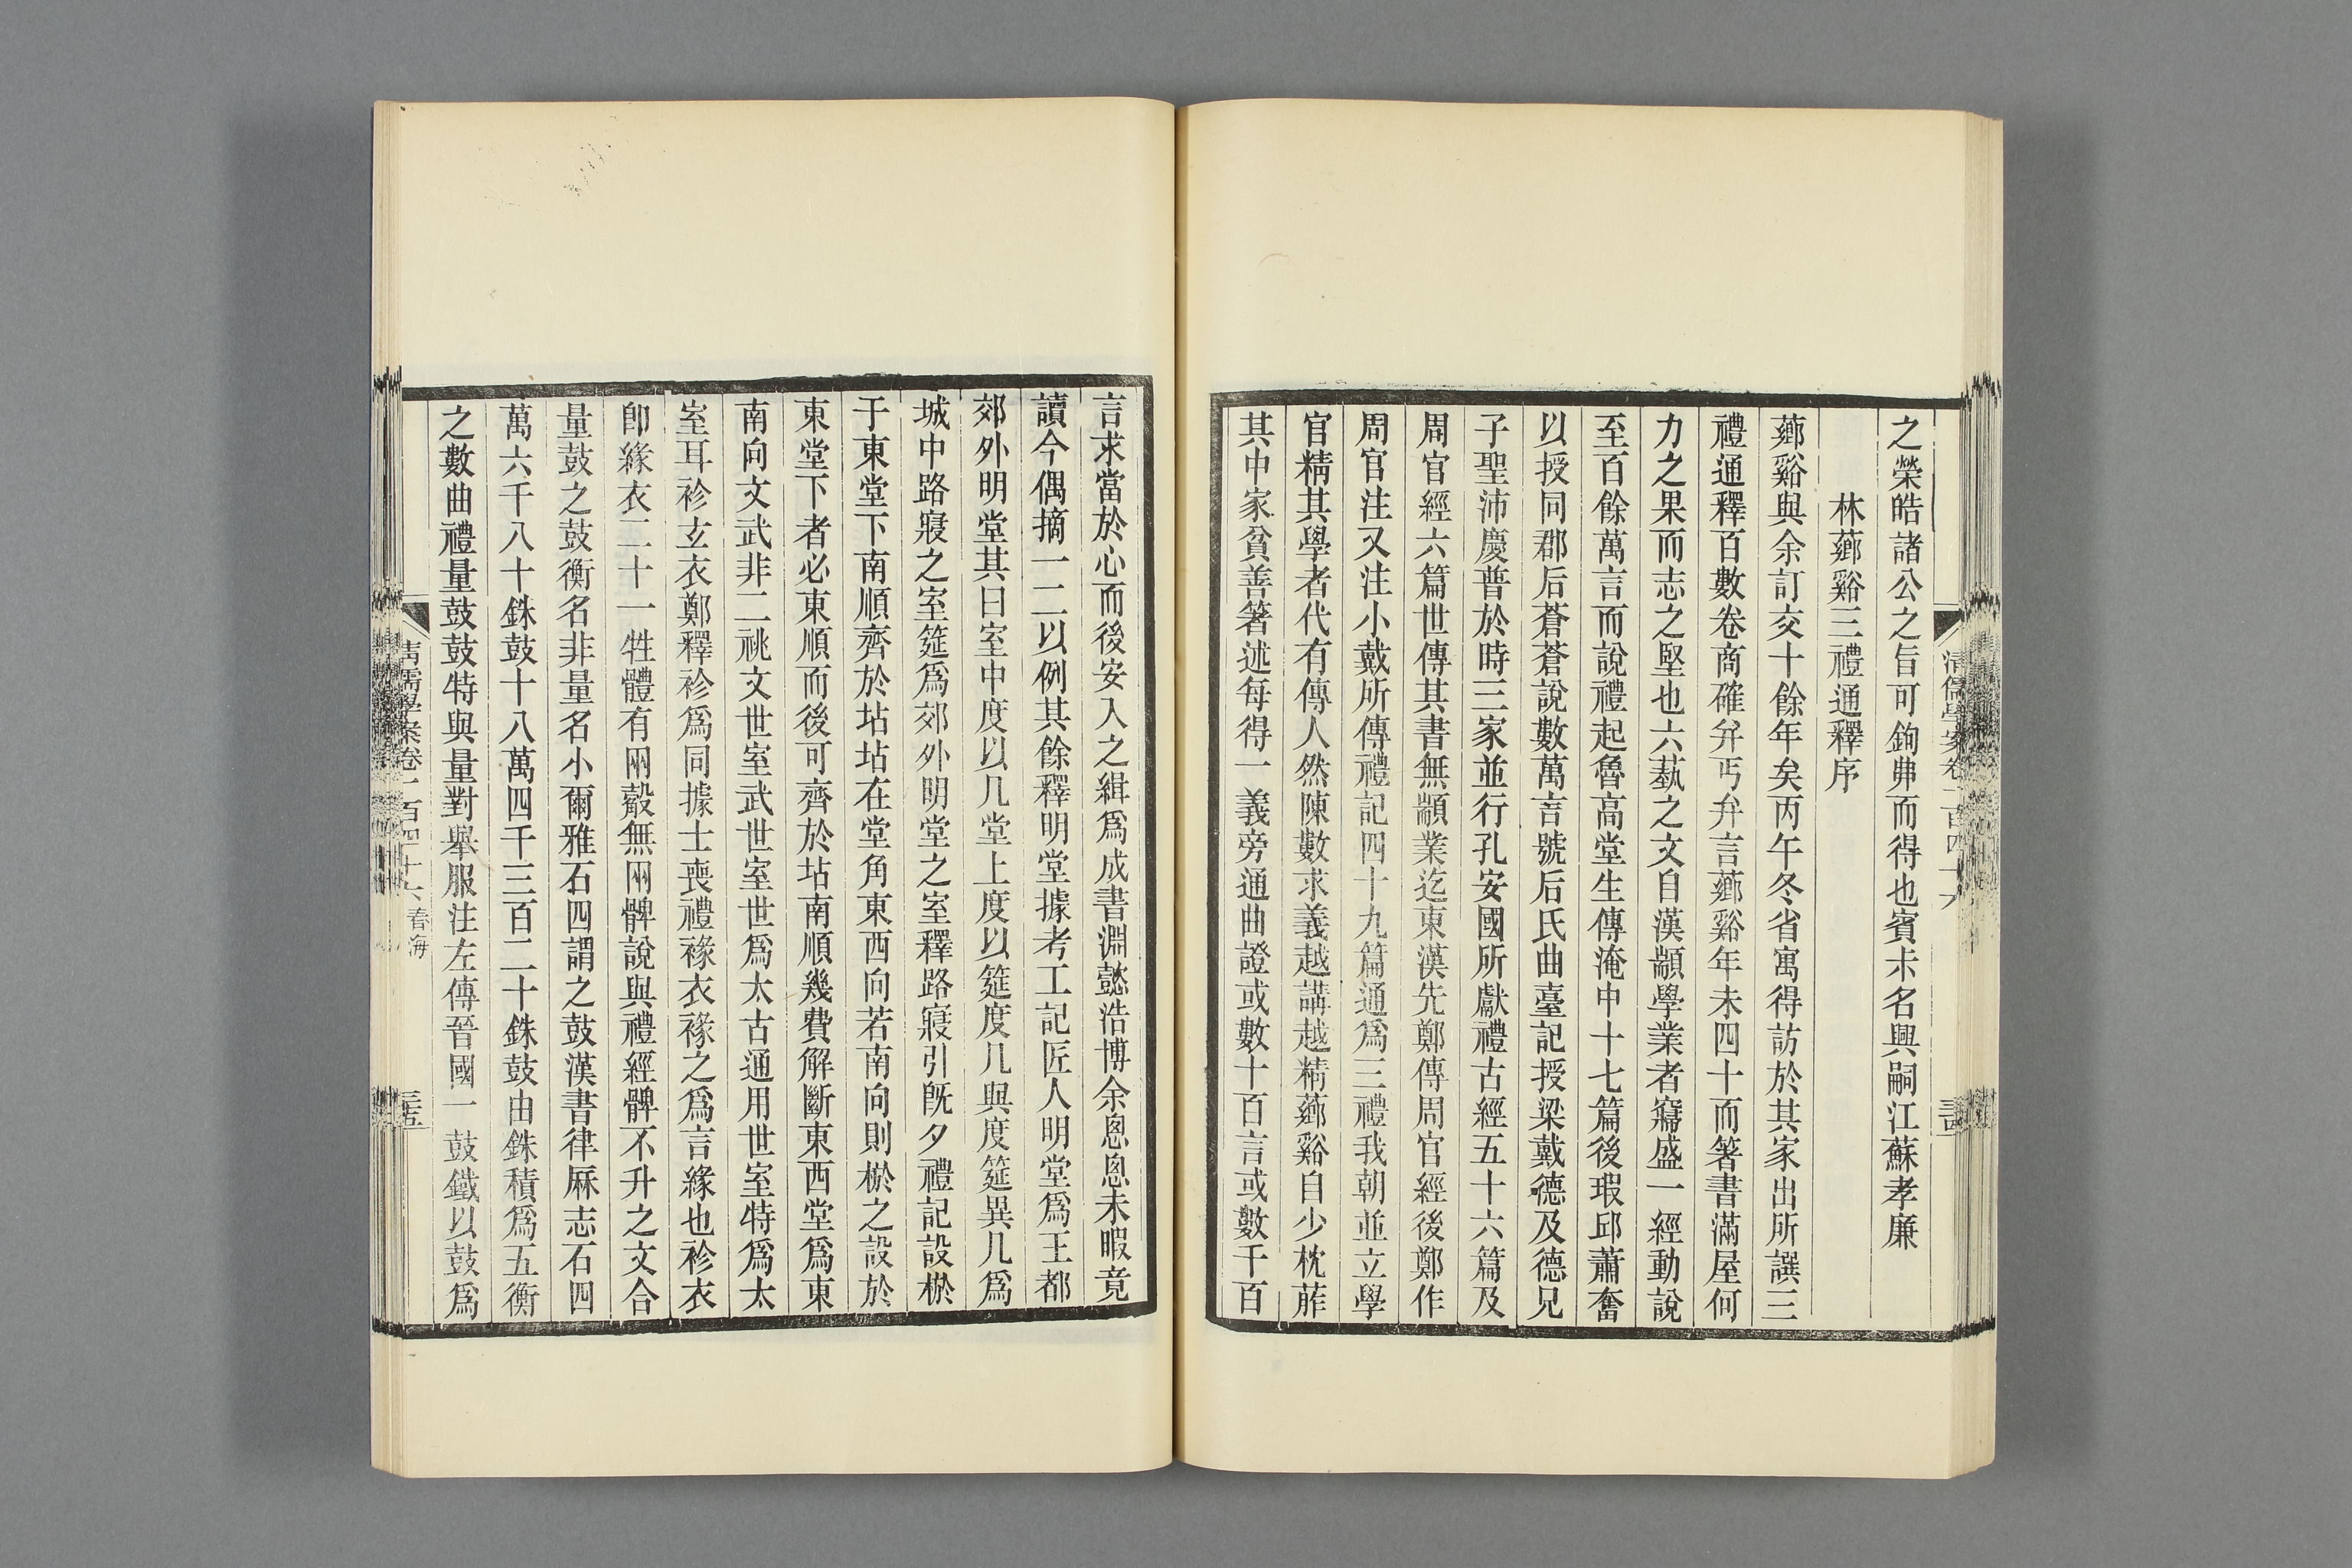 之榮皓諸公之旨可鉤弗而得也賓未名興嗣江蘇孝廉
林薌谿三禮通釋序
薌谿與余訂交十餘年矣丙午冬省寓得訪於其家出所譔三
禮通釋百數卷商確弁丐弁言薌谿年未四十而箸書滿屋何
力之果而志之堅也六蓺之文自漢顓學業者窵盛一經動說
至百餘萬言而說禮起魯高堂生傳淹中十七篇後瑕邱蕭奮
以授同郡后蒼蒼說數萬言號后氏曲臺記授梁戴德及德兄
子聖沛慶普於時三家並行孔安國所獻禮古經五十六篇及
周官經六篇世傳其書無顓業迄東漢先鄭傳周官經後鄭作
周官注又注小戴所傳禮記四十九篇通爲三禮我朝並立學
官精其學者代有傳人然陳數求義越講越精薌谿自少枕葄
其中家貧善箸述每得一義旁通曲證或數十百言或數千百
清儒學案卷一百四十六
三四
言求當於心而後安入之緝爲成書淵懿浩博余恩恩未暇竟
讀今偶摘一二以例其餘釋明堂據考工記匠人明堂爲王都
郊外明堂其曰室中度以几堂上度以筵度几與度筵異几爲
城中路寢之室筵爲郊外明堂之室釋路寢引旣夕禮記設棜
于東堂下南順齊於坫坫在堂角東西向若南向則棜之設於
東堂下者必東順而後可齊於坫南順幾費解斷東西堂爲東
南向文武非二祧文世室武世室世爲太古通用世室特爲太
室耳袗玄衣鄭釋袗爲同據士喪禮褖衣褖之爲言緣也袗衣
卽緣衣二十一牲體有兩觳無兩髀說與禮經髀不升之文合
量鼓之鼓衡名非量名小爾雅石四謂之鼓漢書律厤志石四
萬六千八十銖鼓十八萬四千三百二十銖鼓由銖積爲五衡
之數曲禮量鼓鼓特與量對舉服注左傳晉國一鼓鐵以鼓爲
清儒學案卷一百四十六 春海
三五